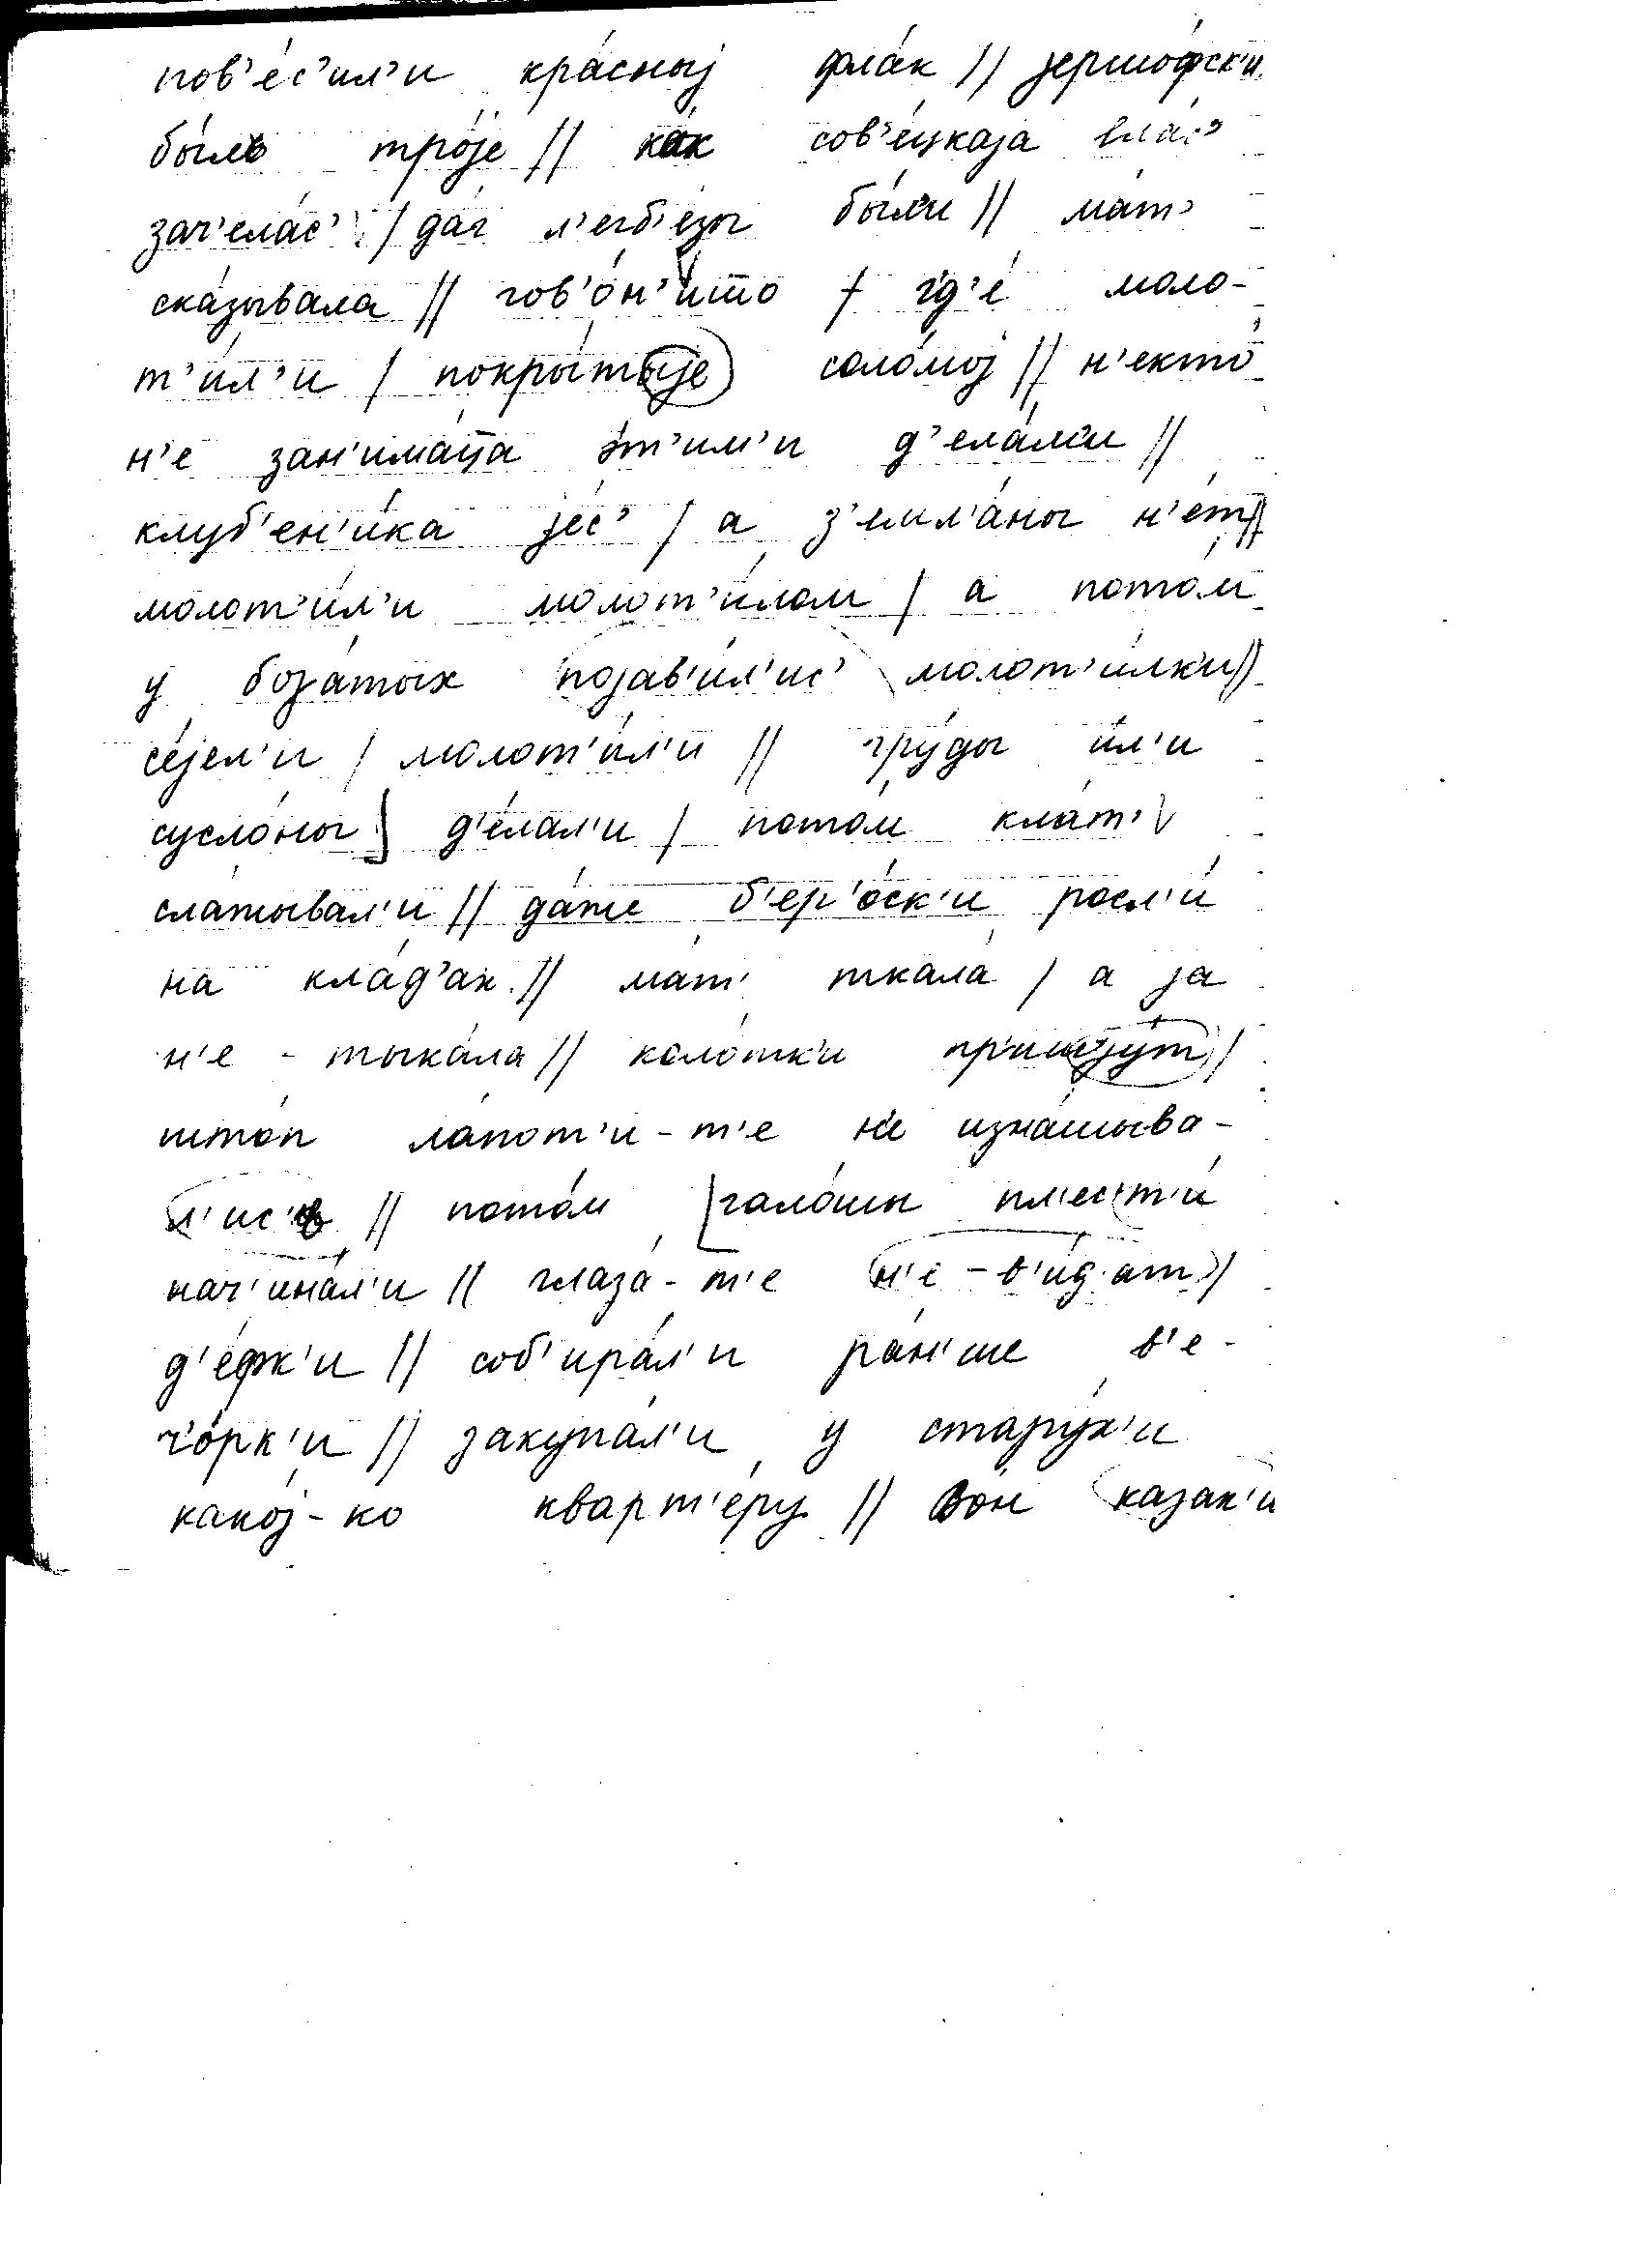 пов’е́с’ил’и кра́сныј фла́к // јершо́фск’и
бы́ль тро́је // ка́к сов’е́цкаја вла́с’
зач’ела́с’ / да́г л’егб’е́зы бы́л’и // ма́т’
ска́зывала // гов’о́н’ишто / гд’е́ моло-
т’и́л’и / покры́тыје соло́мој // н’екто́
н’е зан’има́ца э́т’им’и д’ела́м’и //
клуб’ен’и́ка је́с’ / а з’емл’а́ны н’е́т //
молот’и́л’и молот’и́лом / а пото́м
у бога́тых појав’и́л’ис’ молот’и́лк’и //
се́јел’и / молот’и́л’и // гру́ды и́л’и
сусло́ны д’е́лал’и / пото́м кла́т’
сла́тывал’и // да́же б’ер’о́ск’и росл’и́
на кла́д’ах // ма́т’ ткала́ / а ја
н’е - тыка́ла // коло́тк’и пр’ишјут //
што́п ла́пот’и-т’е н’е изна́шыва-
л’ис’ // пото́м гало́шы пл’ес’т’и́
нач’ина́л’и // глаза́-т’е н’е-в’и́д’ат //
д’е́фк’и // соб’ира́л’и ра́н’ше в’е-
ч’о́рк’и // закупа́л’и у стару́х’и
како́ј-ко кварт’е́ру // во́н казак’и